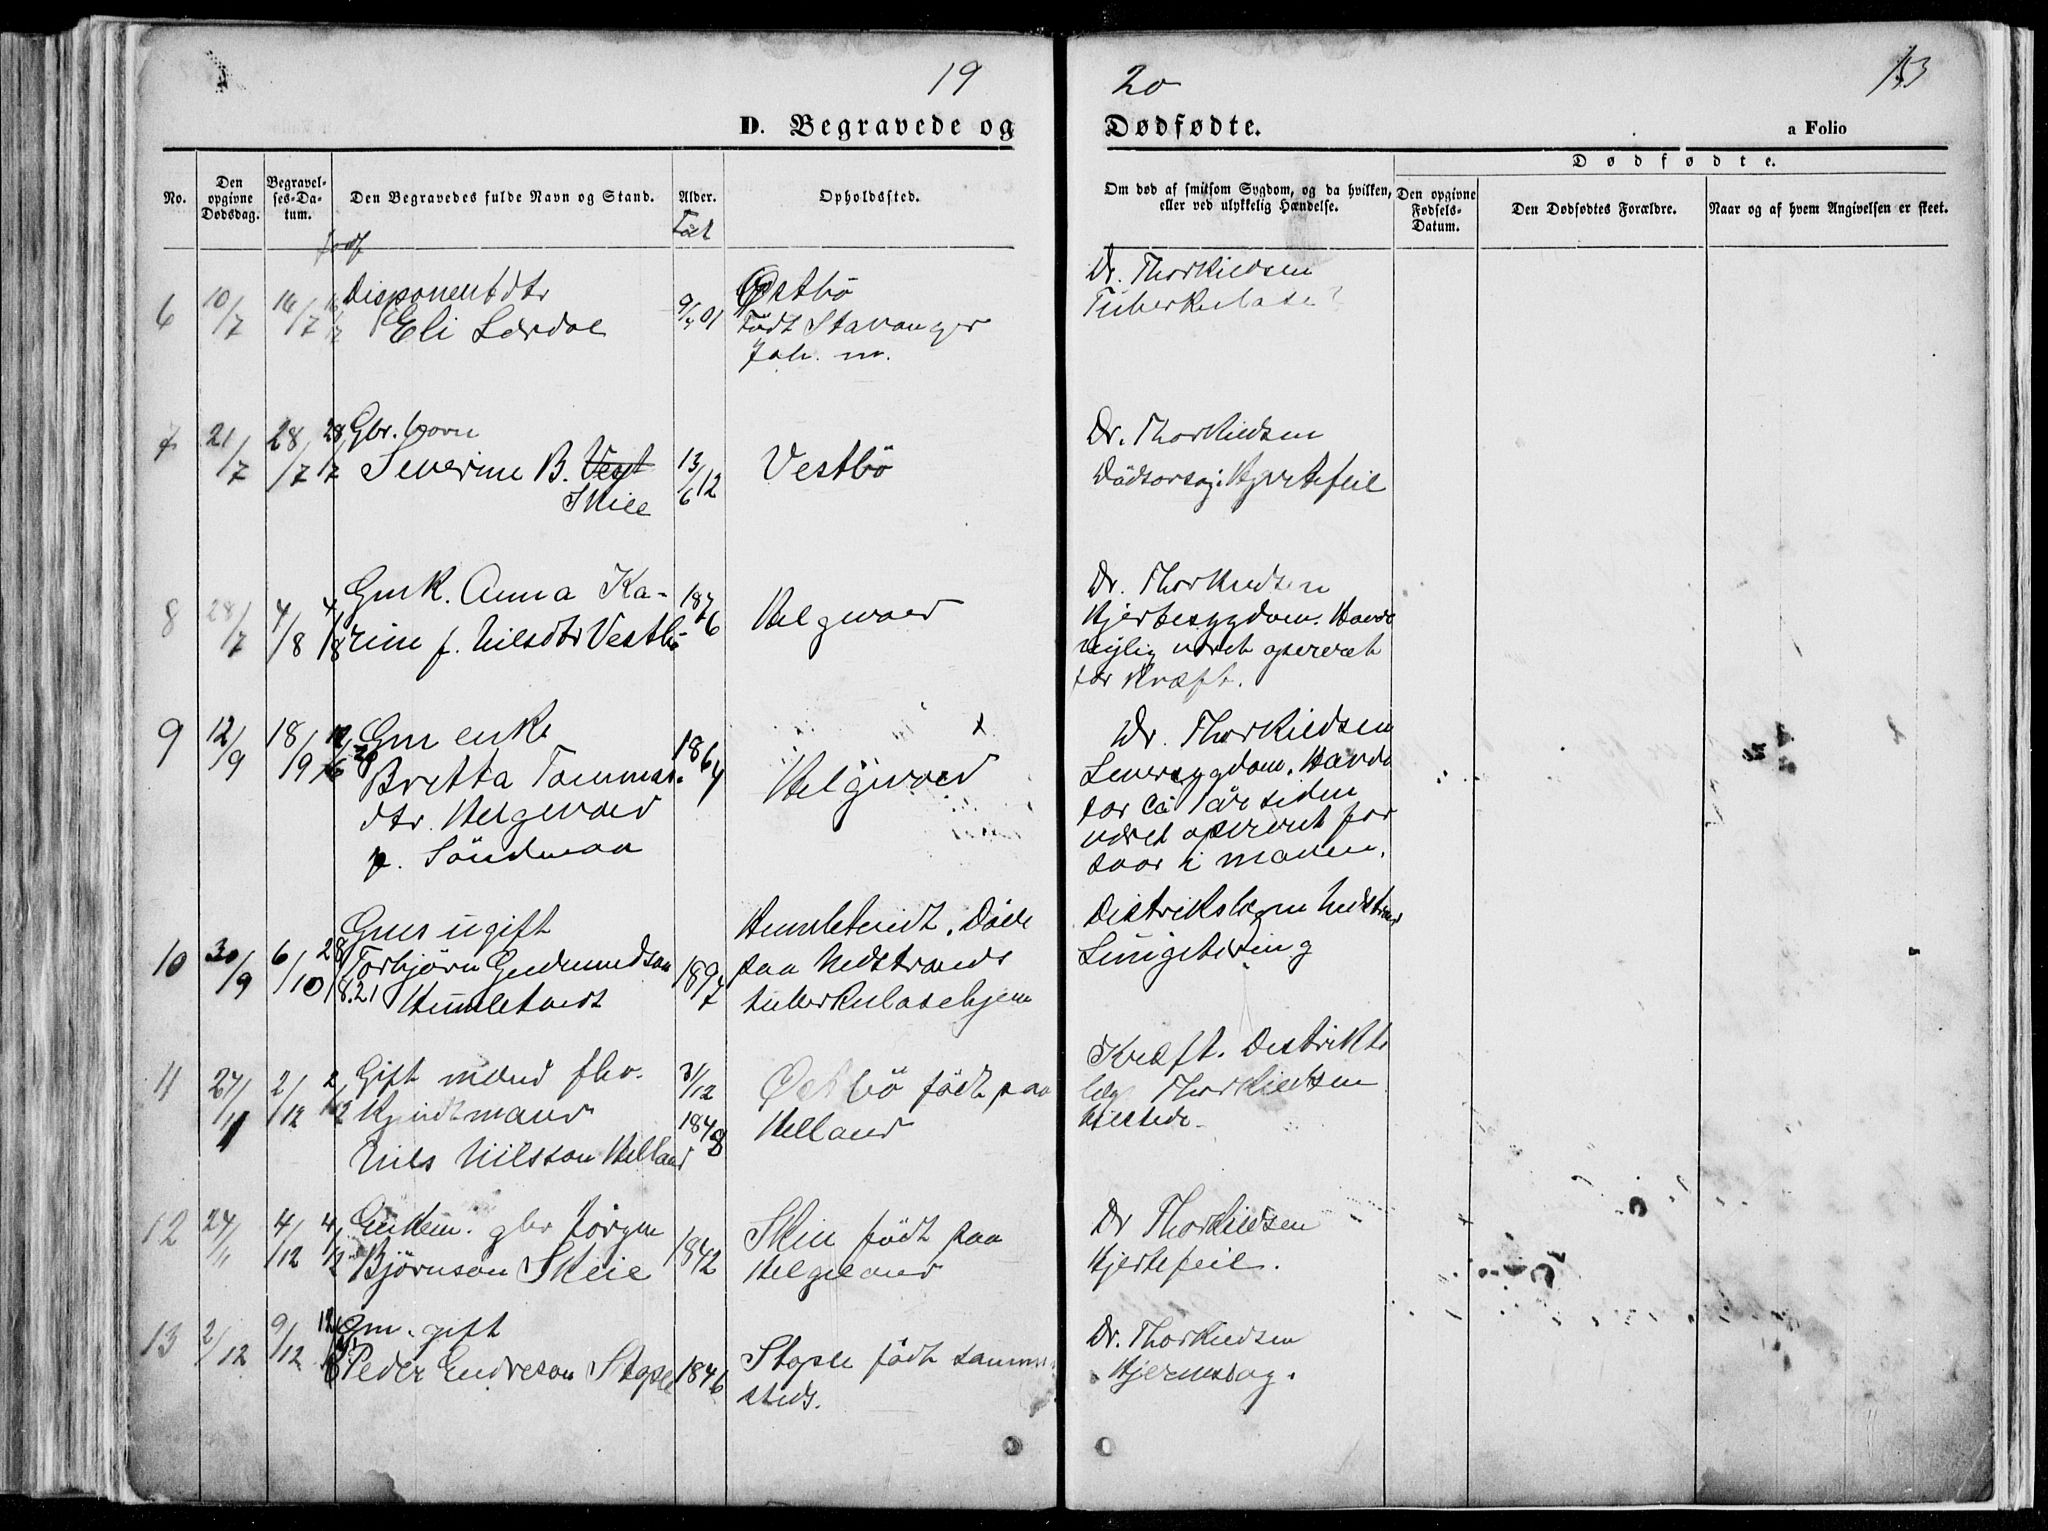 19
20
153
D. Begravede og
Dødfødte.
a Folio
Dødfødte.
No.
Den opgivne Dødsdag.
Begravelses-Datum.
Den Begravedes fulde Navn og Stand.
Alder.
Opholdssted.
Om død af smitsom Sygdom, og da hvilken, eller ved ulykkelig Hændelse.
Den opgivne Fødsels-Datum.
Den Dødfødtes Forældre.
Naar og af hvem Angivelsen er skeet.
Født
6 10/7 14/7 Disponentdtr
Eli Lærdal
9/4 01
Østbö
Født Stavanger
Joh. m.
Dr. Thorkildsen
Tuberkulose
7 21/7 28/7 28/7 Gbr. barn
Severine B. Vest
Skiee
13/6 12
Vestbö
Dr. Thorkildsen
Dödsorsag: Hjertefeil
8 28/7 4/8 4/8 Gmk. Anna Ka-
rine f. Nilsdtr Vestbö
1876
Helgevold
Dr. Thorkildsen
Hjertesygdom. Havde
nylig været operert
for Kræft.
9 12/9 18/9 Gm enke
Bretta Tommas-
dtr. Helgevold
f. Söndenaa
1864
Helgevold
Dr. Thorkildsen
Leversygdom. Havde
for ca 1 år siden
været operert for
saar i maven.
10 30/9 6/10 28/8.21 Gms ugift
Torbjørn Gudmundson
Humletvedt
1897
Humletvedt. Döde
paa Nedstrands
tuberkulosehjem
Distrikslægen Nedstrand
Lungetæring
11 27/11 2/12 2/12 Gift mand fhv.
Kjendtmand
Nils Nilsson Helland
31/12
1848
Østbö födt paa
Helland
Kræft. Distrikts
læge Thorkildsen
Vikedal
12 24/11 4/12 4/12 Enkem. gbr Jörgen
Björnson Skeie
1842
Skeie födt paa
Helgeland
Dr Thorkildsen
Hjertefeil.
13 2/12 9/12 Gm. gift
Peder Endreson Stople
1846
Stople födt samme-
steds.
Dr. Thorkildsen
Hjerneslag.